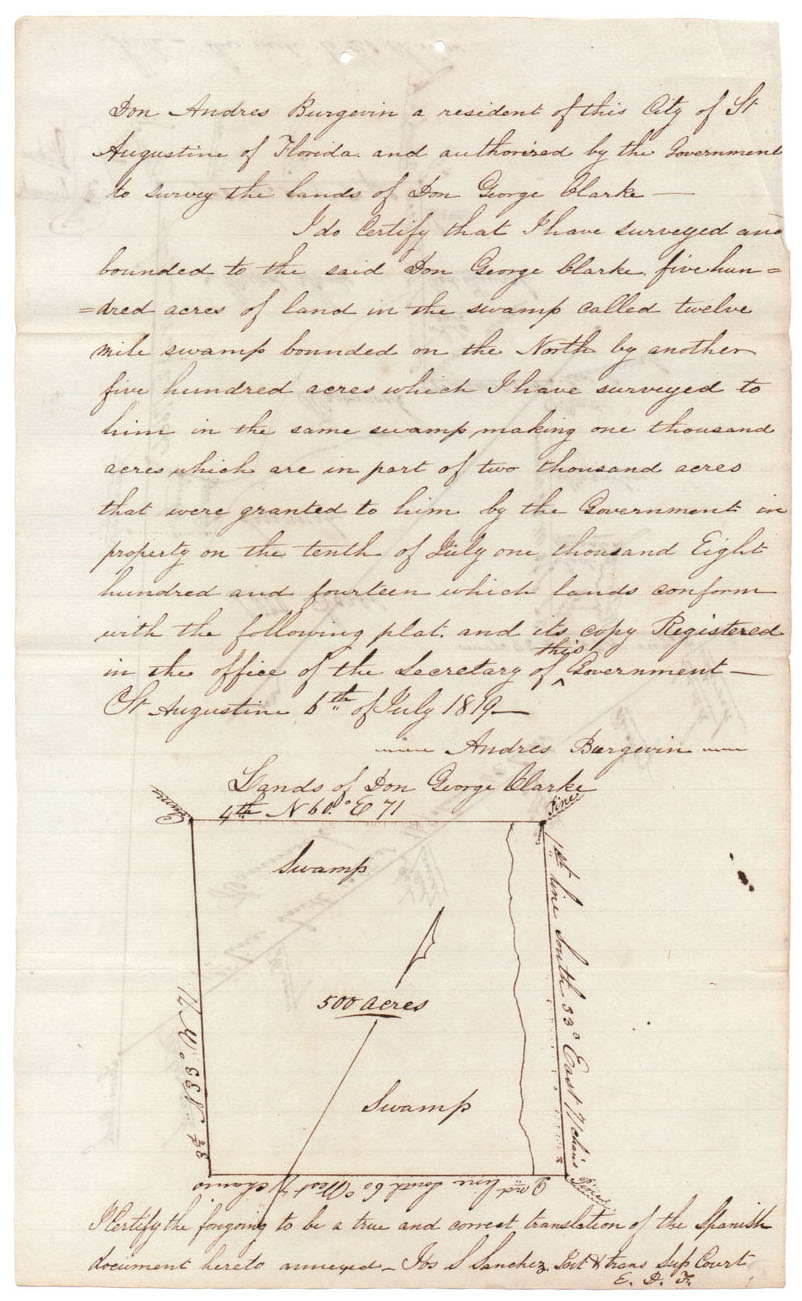 Don Andres Burgevin a resident of this City of St
Augustine of Florida. and authorised by the Government
to survey the lands of Don George Clarke —
I do Certify that I have surveyed and
bounded to the said Don George Clarke, five hun=
=dred acres of land in the swamp called twelve
mile swamp bounded on the North by another
five hundred acres which I have surveyed to
him in the same swamp, making one thousand
acres which are in part of two thousand acres
that were granted to him by the Government in
property on the tenth of July one thousand Eight
hundred and fourteen which lands conform
with the following plat. and its copy Registered
in the office of the Secretary of this Government —
St Augustine 6th of July 1819 —
Andres Burgevin
Lands of Don George Clarke
4th N 60° E 71
Pine
Swamp
1st line South 33° East 71 chains
500 acres
3d N 33° W 71
Swamp
2nd line South 60 West 71 chains
Pine
I Certify the foregoing to be a true and correct translation of the Spanish
document hereto annexed — Jos S Sanchez. Int & trans Sup Court
E. D. F.